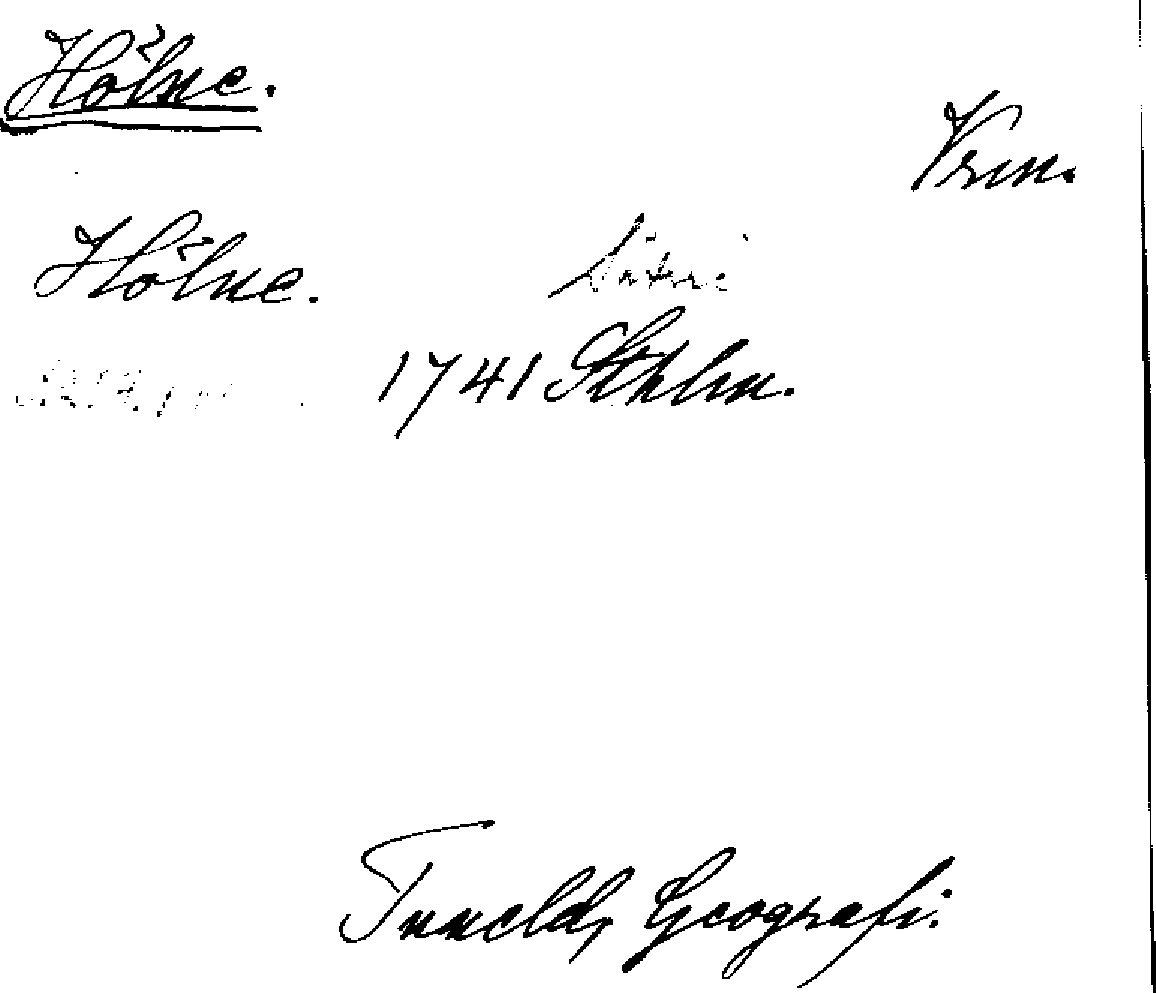 Hölne.
Vrm.
Hölne.
Säteri
1741 Sthlm.
Tuneld, Geografi.